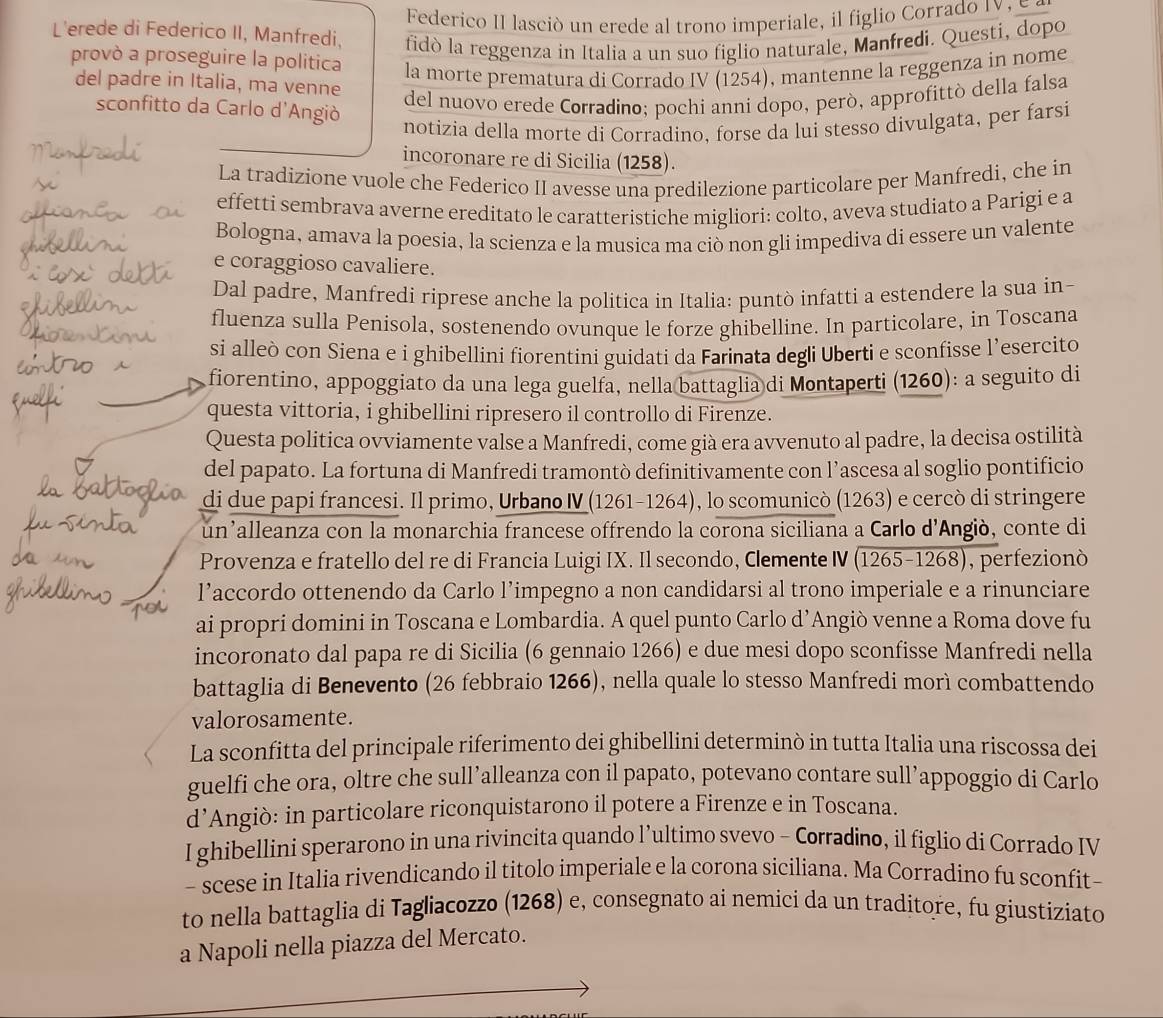 L'erede di Federico II, Manfredi,
provò a proseguire la politica
del padre in Italia, ma venne
sconfitto da Carlo d'Angiò
Federico II lasciò un erede al trono imperiale, il figlio Corrado IV, e
fidò la reggenza in Italia a un suo figlio naturale, Manfredi. Questi, dopo
la morte prematura di Corrado IV (1254), mantenne la reggenza in nome
del nuovo erede Corradino; pochi anni dopo, però, approfittò della falsa
notizia della morte di Corradino, forse da lui stesso divulgata, per farsi
incoronare re di Sicilia (1258).
La tradizione vuole che Federico II avesse una predilezione particolare per Manfredi, che in
effetti sembrava averne ereditato le caratteristiche migliori: colto, aveva studiato a Parigi e a
Bologna, amava la poesia, la scienza e la musica ma ciò non gli impediva di essere un valente
e coraggioso cavaliere.
Dal padre, Manfredi riprese anche la politica in Italia: puntò infatti a estendere la sua in-
fluenza sulla Penisola, sostenendo ovunque le forze ghibelline. In particolare, in Toscana
si alleò con Siena e i ghibellini fiorentini guidati da Farinata degli Uberti e sconfisse l'esercito
fiorentino, appoggiato da una lega guelfa, nella battaglia di Montaperti (1260): a seguito di
questa vittoria, i ghibellini ripresero il controllo di Firenze.
Questa politica ovviamente valse a Manfredi, come già era avvenuto al padre, la decisa ostilità
del papato. La fortuna di Manfredi tramontò definitivamente con l'ascesa al soglio pontificio
di due papi francesi. Il primo, Urbano IV (1261-1264), lo scomunicò (1263) e cercò di stringere
un'alleanza con la monarchia francese offrendo la corona siciliana a Carlo d'Angiò, conte di
Provenza e fratello del re di Francia Luigi IX. Il secondo, Clemente IV (1265-1268), perfezionò
l'accordo ottenendo da Carlo l'impegno a non candidarsi al trono imperiale e a rinunciare
ai propri domini in Toscana e Lombardia. A quel punto Carlo d'Angiò venne a Roma dove fu
incoronato dal papa re di Sicilia (6 gennaio 1266) e due mesi dopo sconfisse Manfredi nella
battaglia di Benevento (26 febbraio 1266), nella quale lo stesso Manfredi morì combattendo
valorosamente.
La sconfitta del principale riferimento dei ghibellini determinò in tutta Italia una riscossa dei
guelfi che ora, oltre che sull'alleanza con il papato, potevano contare sull'appoggio di Carlo
d'Angiò: in particolare riconquistarono il potere a Firenze e in Toscana.
I ghibellini sperarono in una rivincita quando l'ultimo svevo - Corradino, il figlio di Corrado IV
- scese in Italia rivendicando il titolo imperiale e la corona siciliana. Ma Corradino fu sconfit-
to nella battaglia di Tagliacozzo (1268) e, consegnato ai nemici da un traditore, fu giustiziato
a Napoli nella piazza del Mercato.
Manfredi
si
affianca ai
ghibellini
i così detti
ghibellini
fiorentini
contro i
guelfi
la battaglia
fu sinta
da un
ghibellino poi